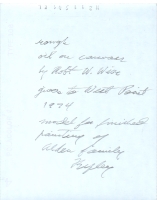 rough
oil on canvas
by Robt W. Weir
goes to West Point
1974
model for finished
painting of
Alden family
Kepley